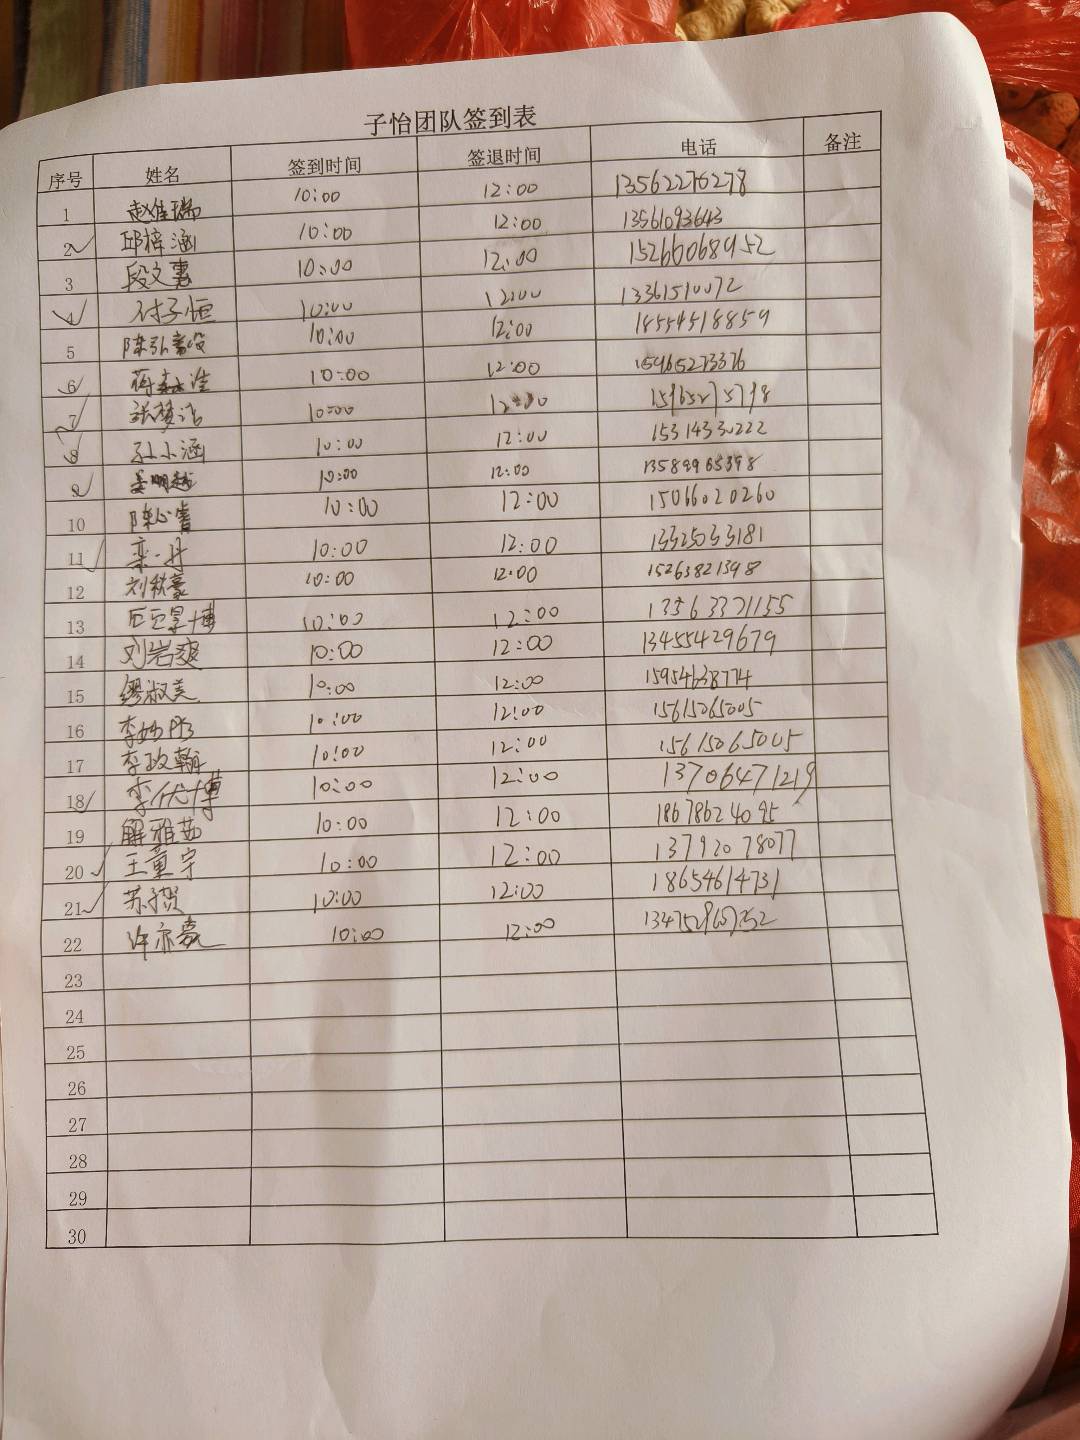 子怡团队签到表
序号 姓名 签到时间 签退时间 电话 备注
1 赵佳瑞 10:00 12:00 13562276278
2 邱梓涵 10:00 12:00 13561093643
3 段文惠 10:00 12:00 15266068952
4 付子恒 10:00 12:00 13361510072
5 陈弘 10:00 12:00 18554518859
6 蒋 10:00 12:00 15965273376
7 张梦洁 10:00 12:00 15965275798
8 孙小涵 10:00 12:00 15314330222
9 姜明越 10:00 12:00 13589965398
10 陈心 10:00 12:00 15066020260
11 栾一丹 10:00 12:00 13325033181
12 刘秋豪 10:00 12:00 15263821398
13 10:00 12:00 13563371155
14 刘岩爽 10:00 12:00 13455429679
15 缪淑美 10:00 12:00 15954638774
16 李 10:00 12:00 15615065005
17 李政翰 10:00 12:00 15615065005
18 李代博 10:00 12:00 13706471219
19 解雅茹 10:00 12:00 18678624095
20 王童宇 10:00 12:00 13792078077
21 苏子贺 10:00 12:00 18654614731
22 许亦豪 10:00 12:00
23
24
25
26
27
28
29
30